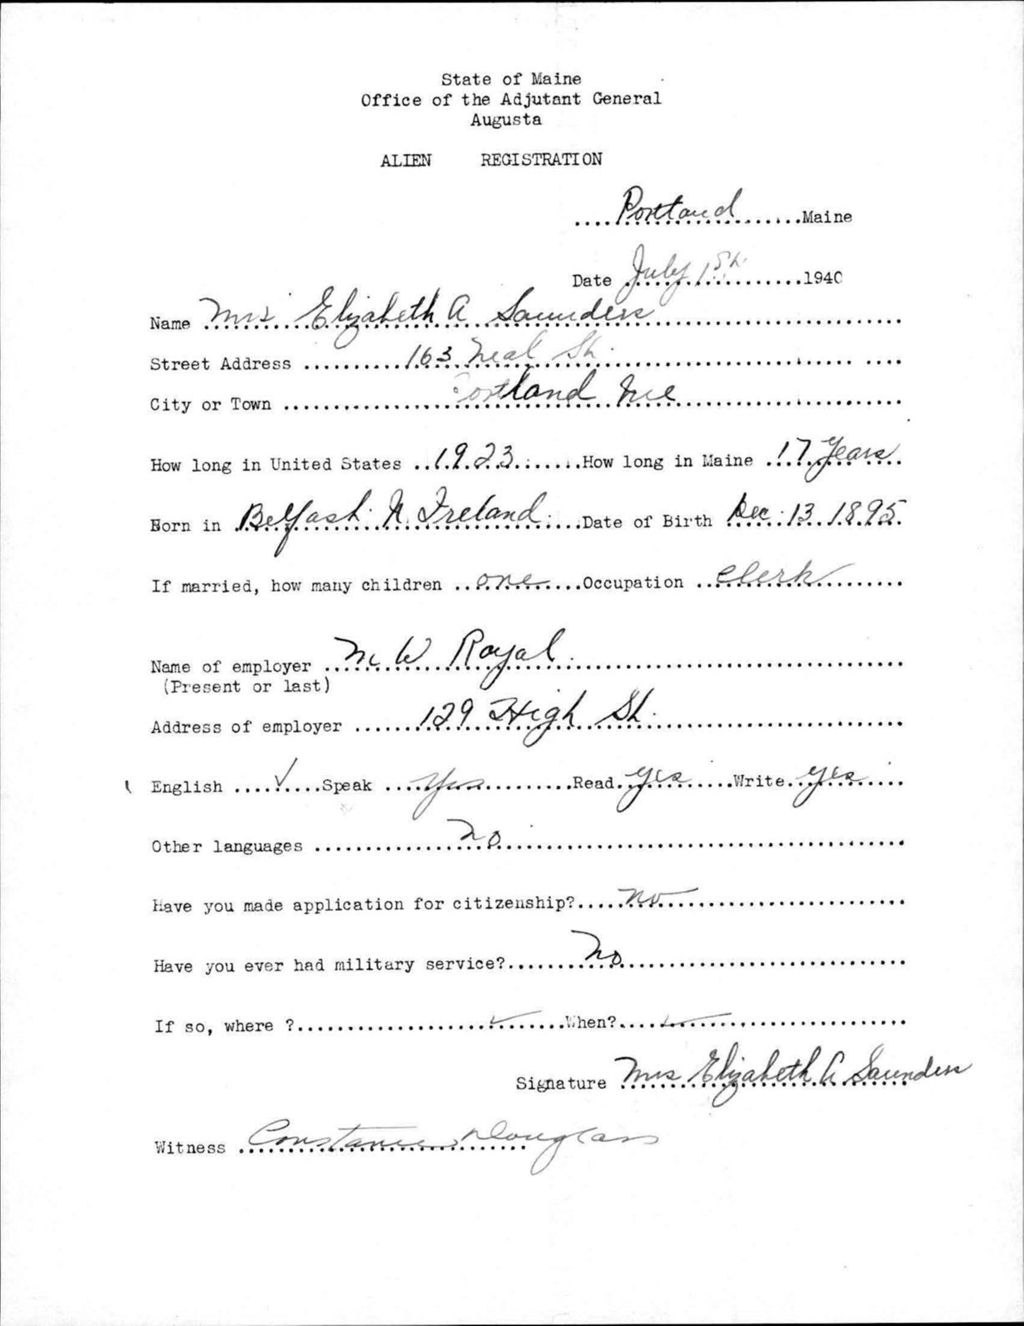 State of Maine
Office of the Adjutant General
Augusta
ALIEN REGISTRATION
Portland Maine
Date July 1st 1940
Name Mrs Elizabeth A Saunders
Street Address 163 Neal St.
City or Town Portland Me
How long in United States 1923 How long in Maine 17 Years
Born in Belfast N. Ireland. Date of Birth Dec. 13. 1895
If married, how many children one Occupation clerk
Name of employer W Royal.
(Present or last)
Address of employer 129 High St.
English ✓ Speak Yes Read Yes Write Yes
Other languages No
Have you made application for citizenship? No
Have you ever had military service? No
If so, where ? ✓ When? ✓
Signature Mrs Elizabeth A Saunders
Witness Constance Douglass